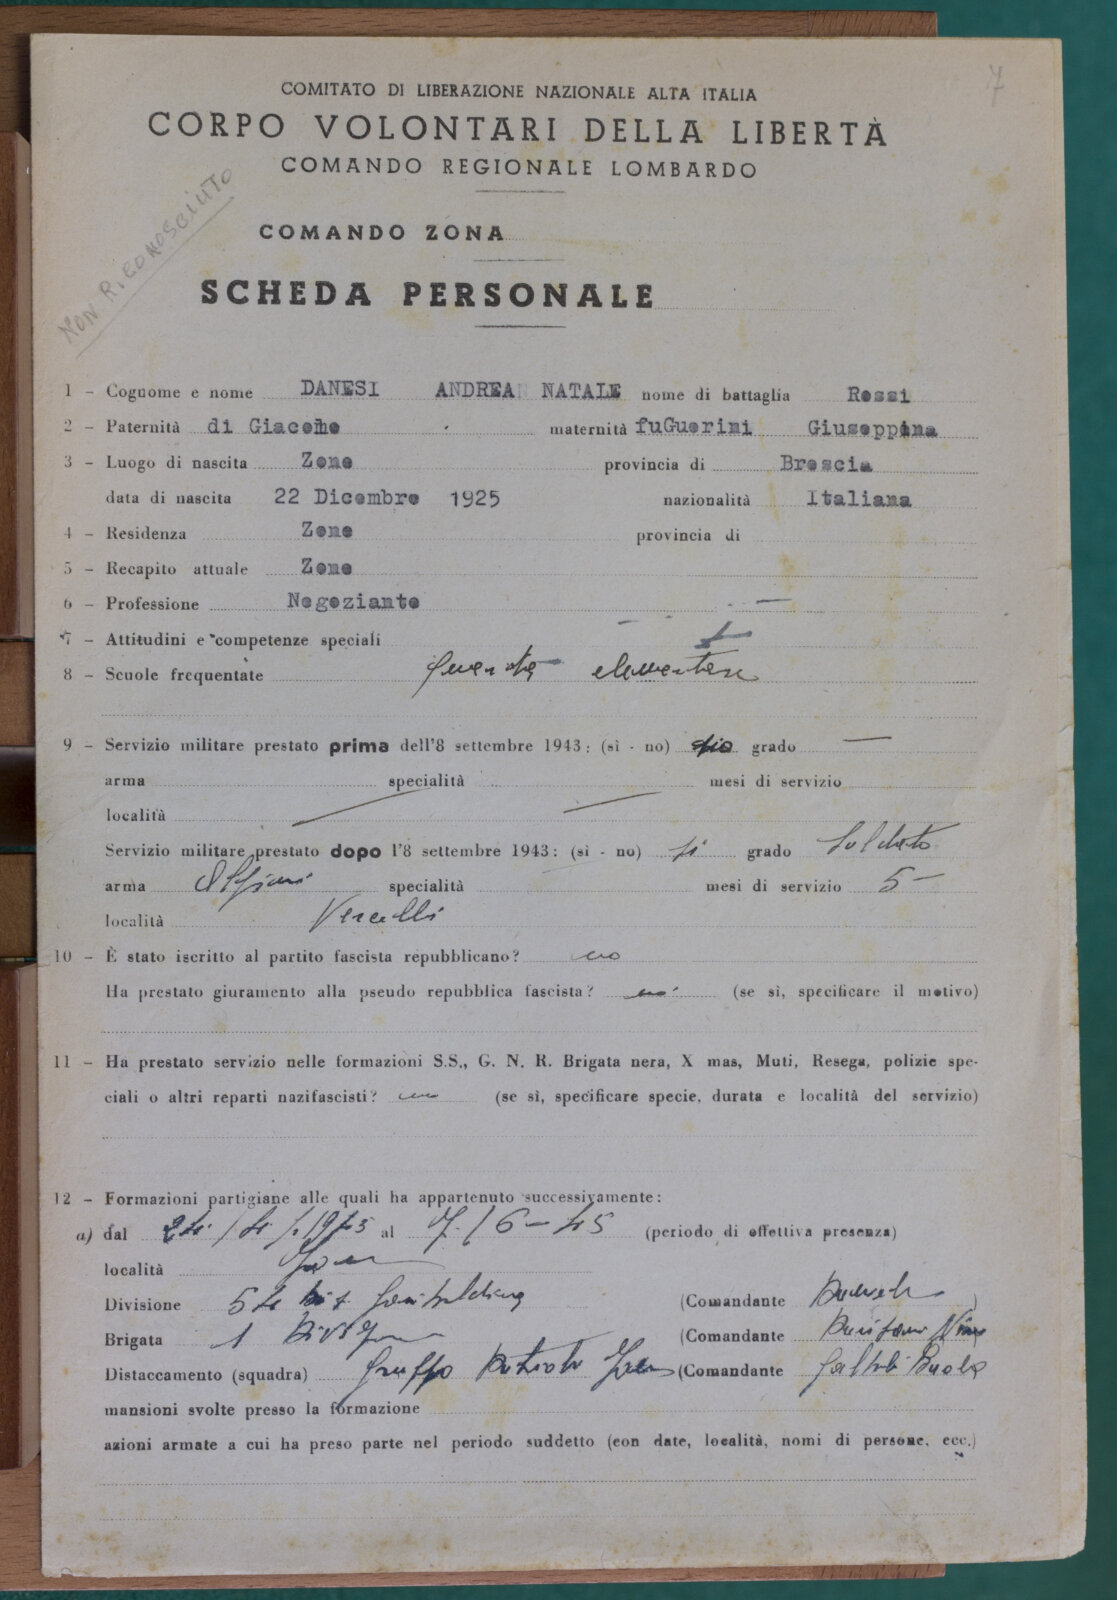 7
COMITATO DI LIBERAZIONE NAZIONALE ALTA ITALIA
CORPO VOLONTARI DELLA LIBERTÀ
COMANDO REGIONALE LOMBARDO
NON RICONOSCIUTO
COMANDO ZONA
SCHEDA PERSONALE
1 - Cognome e nome DANESI ANDREA NATALE nome di battaglia Rossi
2 - Paternità di Giacomo maternità fuGuerini Giuseppina
3 - Luogo di nascita Zone provincia di Brescia
data di nascita 22 Dicembre 1925 nazionalità Italiana
4 - Residenza Zone provincia di
5 - Recapito attuale Zone
6 - Professione Negoziante —
7 - Attitudini e competenze speciali
8 - Scuole frequentate quarta elementare
9 - Servizio militare prestato prima dell'8 settembre 1943: (sì - no) no grado —
arma specialità mesi di servizio
località
Servizio militare prestato dopo l'8 settembre 1943: (sì - no) si grado Soldato
arma Alpini specialità mesi di servizio 5 —
località Vercelli
10 - È stato iscritto al partito fascista repubblicano? no
Ha prestato giuramento alla pseudo repubblica fascista? no (se sì, specificare il motivo)
11 - Ha prestato servizio nelle formazioni S.S., G. N. R. Brigata nera, X mas, Muti, Resega, polizie spe-
ciali o altri reparti nazifascisti? no (se sì, specificare specie, durata e località del servizio)
12 - Formazioni partigiane alle quali ha appartenuto successivamente:
a) dal 24/4/1945 al 7/6-45 (periodo di effettiva presenza)
località Zone
Divisione 54 Garibaldina (Comandante )
Brigata 1 (Comandante Nino
Distaccamento (squadra) Gruppo Zone (Comandante Paolo
mansioni svolte presso la formazione
azioni armate a cui ha preso parte nel periodo suddetto (con date, località, nomi di persone, ecc.)